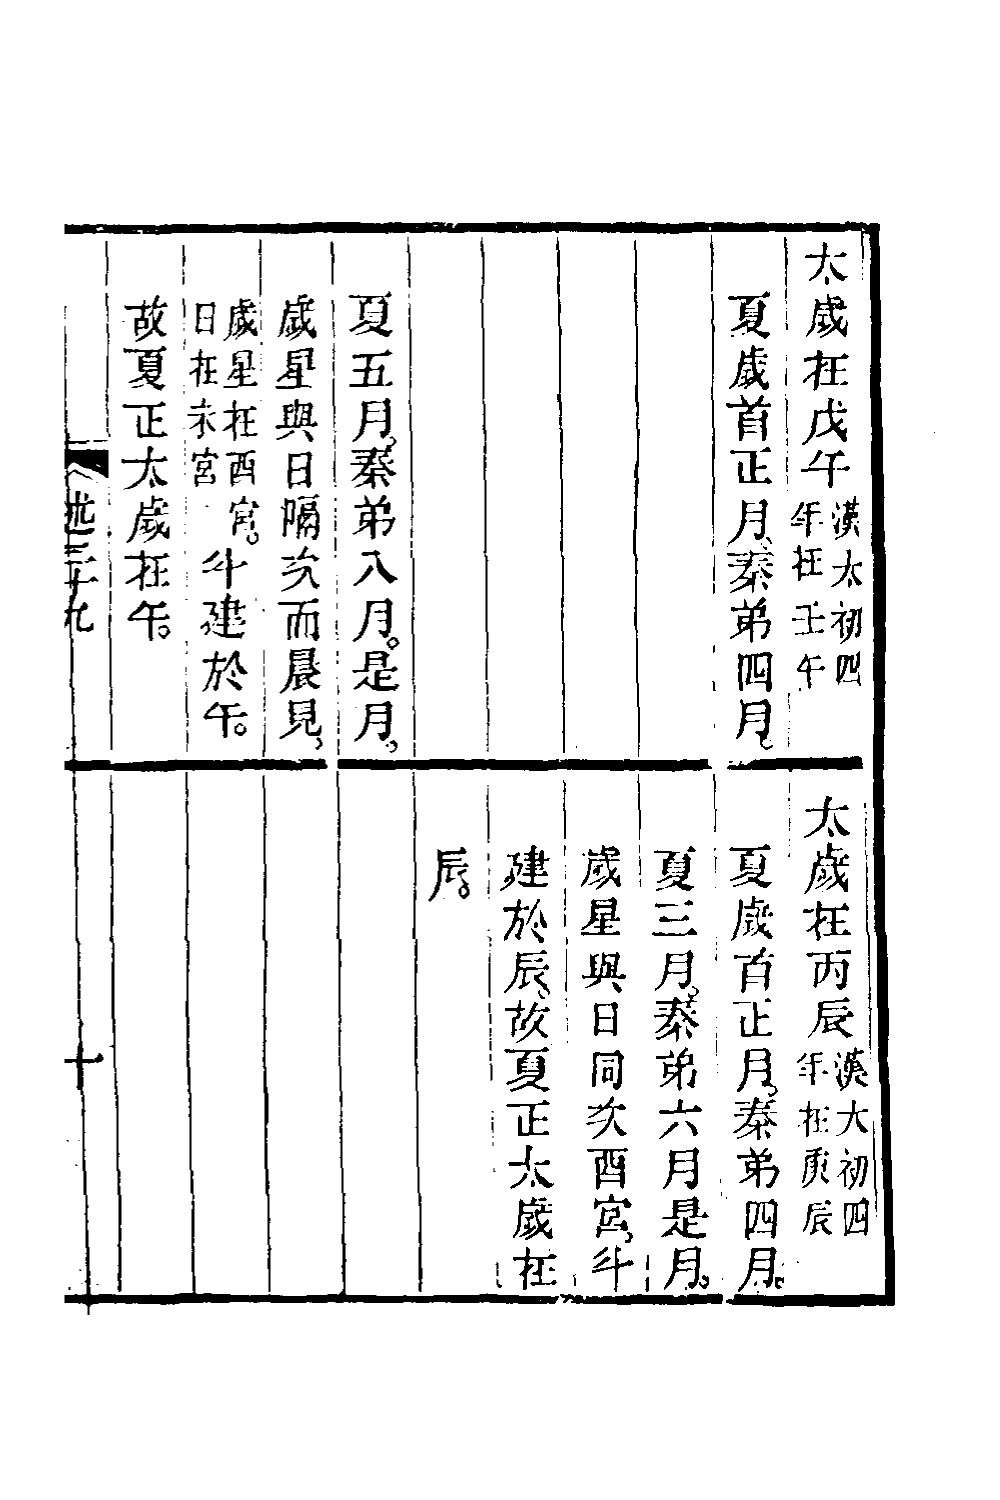 太歲在戊午漢太初四年在壬午
夏歲首正月、秦弟四月。
夏五月、秦弟八月。是月、
歲星與日隔次而晨見、
歲星在酉宮。日在未宮斗建於午。
故夏正太歲在午。
太歲在丙辰漢太初四年在庚辰
夏歲首正月、秦弟四月。
夏三月。秦弟六月是月。
歲星與日同次酉宮、斗
建於辰、故夏正太歲在
辰。
述二十九
十